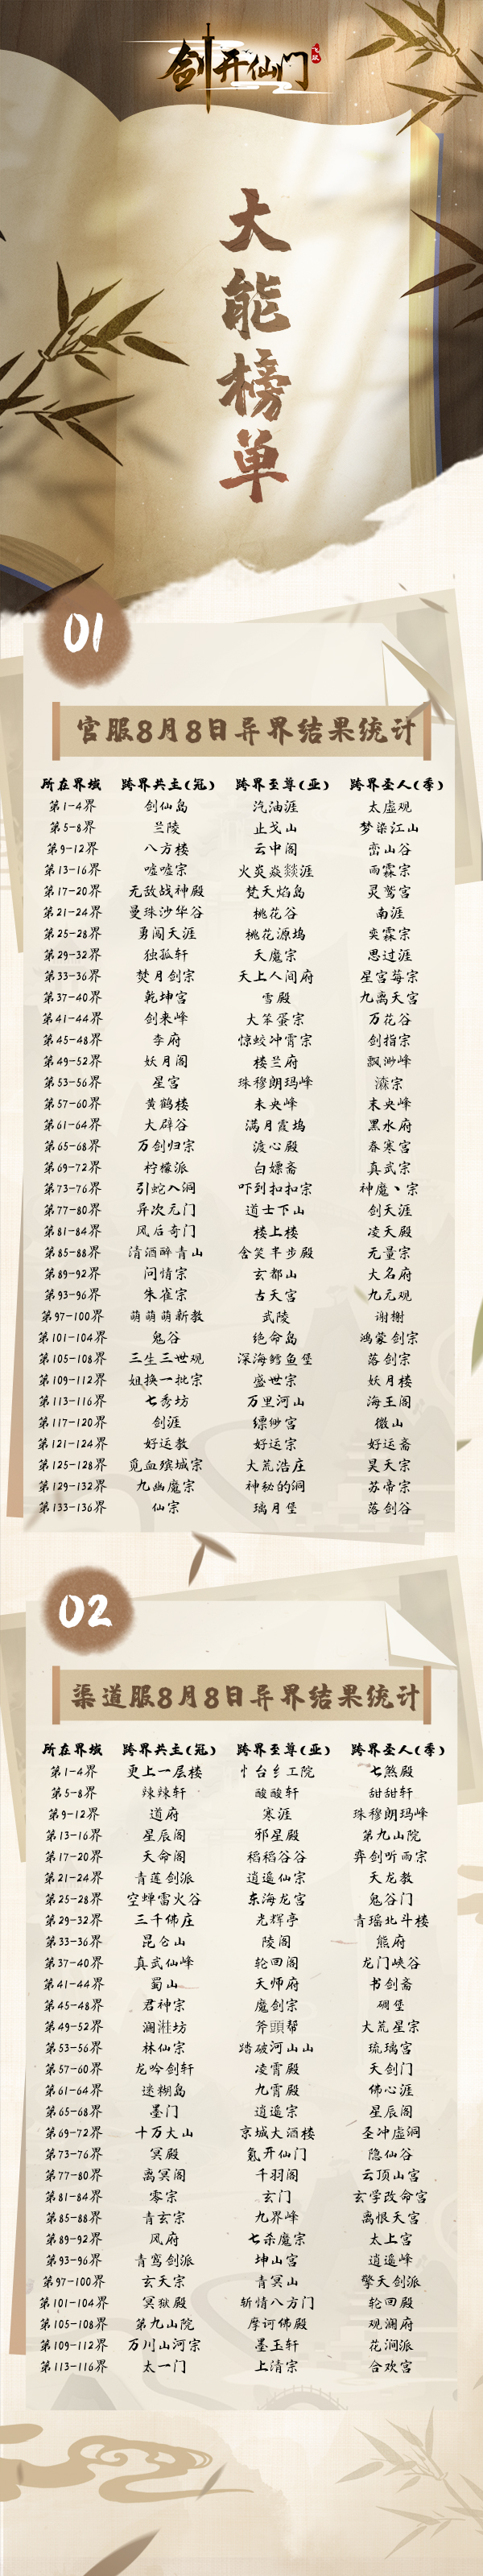 剑开仙门
飞跃
大能榜单
01
官服8月8日异界结果统计
所在界域 跨界共主(冠) 跨界至尊(亚) 跨界圣人(季)
第1-4界 剑仙岛 汽油涯 太虚观
第5-8界 兰陵 止戈山 梦染江山
第9-12界 八方楼 云中阁 峦山谷
第13-16界 嘘嘘宗 火炎焱燚涯 雨霖宗
第17-20界 无敌战神殿 梵天焰岛 灵鹫宫
第21-24界 曼珠沙华谷 桃花谷 南涯
第25-28界 勇闯天涯 桃花源坞 奕霖宗
第29-32界 独孤轩 天魔宗 思过涯
第33-36界 焚月剑宗 天上人间府 星宫莓宗
第37-40界 乾坤宫 雪殿 九离天宫
第41-44界 剑来峰 大笨蛋宗 万花谷
第45-48界 李府 惊蛟冲霄宗 剑指宗
第49-52界 妖月阁 楼兰府 飘渺峰
第53-56界 星宫 珠穆朗玛峰 潹宗
第57-60界 黄鹤楼 未央峰 末央峰
第61-64界 大辟谷 满月霞坞 黑水府
第65-68界 万剑归宗 渡心殿 春寒宫
第69-72界 柠檬派 白嫖斋 真武宗
第73-76界 引蛇入洞 吓到扣扣宗 神魔丶宗
第77-80界 异次元门 道士下山 剑天涯
第81-84界 风后奇门 楼上楼 凌天殿
第85-88界 清酒醉青山 含笑半步殿 无量宗
第89-92界 问情宗 玄都山 大名府
第93-96界 朱雀宗 古天宫 九元观
第97-100界 萌萌萌新教 武陵 谢榭
第101-104界 鬼谷 绝命岛 鸿蒙剑宗
第105-108界 三生三世观 深海鳕鱼堡 落剑宗
第109-112界 姐换一批宗 盛世宗 妖月楼
第113-116界 七秀坊 万里河山 海王阁
第117-120界 剑涯 缥缈宫 微山
第121-124界 好运教 好运宗 好运斋
第125-128界 觅血殡城宗 大荒浩庄 昊天宗
第129-132界 九幽魔宗 神秘的洞 苏帝宗
第133-136界 仙宗 璃月堡 落剑谷
02
渠道服8月8日异界结果统计
所在界域 跨界共主(冠) 跨界至尊(亚) 跨界圣人(季)
第1-4界 更上一层楼 忄台纟工院 七煞殿
第5-8界 辣辣轩 酸酸轩 甜甜轩
第9-12界 道府 寒涯 珠穆朗玛峰
第13-16界 星辰阁 邪星殿 第九山院
第17-20界 天命阁 稻稻谷谷 弈剑听雨宗
第21-24界 青莲剑派 逍遥仙宗 天龙教
第25-28界 空蝉雷火谷 东海龙宫 鬼谷门
第29-32界 三千佛庄 光辉亭 青瑶北斗楼
第33-36界 昆仑山 陵阁 熊府
第37-40界 真武仙峰 轮回阁 龙门峡谷
第41-44界 蜀山 天师府 书剑斋
第45-48界 君神宗 魔剑宗 碉堡
第49-52界 澜湴坊 斧頭帮 大荒星宗
第53-56界 林仙宗 踏破河山山 琉璃宫
第57-60界 龙吟剑轩 凌霄殿 天剑门
第61-64界 迷糊岛 九霄殿 佛心涯
第65-68界 墨门 逍遥宗 星辰阁
第69-72界 十万大山 京城大酒楼 圣冲虚洞
第73-76界 冥殿 氪开仙门 隐仙谷
第77-80界 离冥阁 千羽阁 云顶山宫
第81-84界 零宗 玄门 玄学改命宫
第85-88界 青玄宗 九界峰 离恨天宫
第89-92界 风府 七杀魔宗 太上宫
第93-96界 青鸾剑派 坤山宫 逍遥峰
第97-100界 玄天宗 青冥山 擎天剑派
第101-104界 冥狱殿 斩情八方门 轮回殿
第105-108界 第九山院 摩诃佛殿 观澜府
第109-112界 万川山河宗 墨玉轩 花涧派
第113-116界 太一门 上清宗 合欢宫